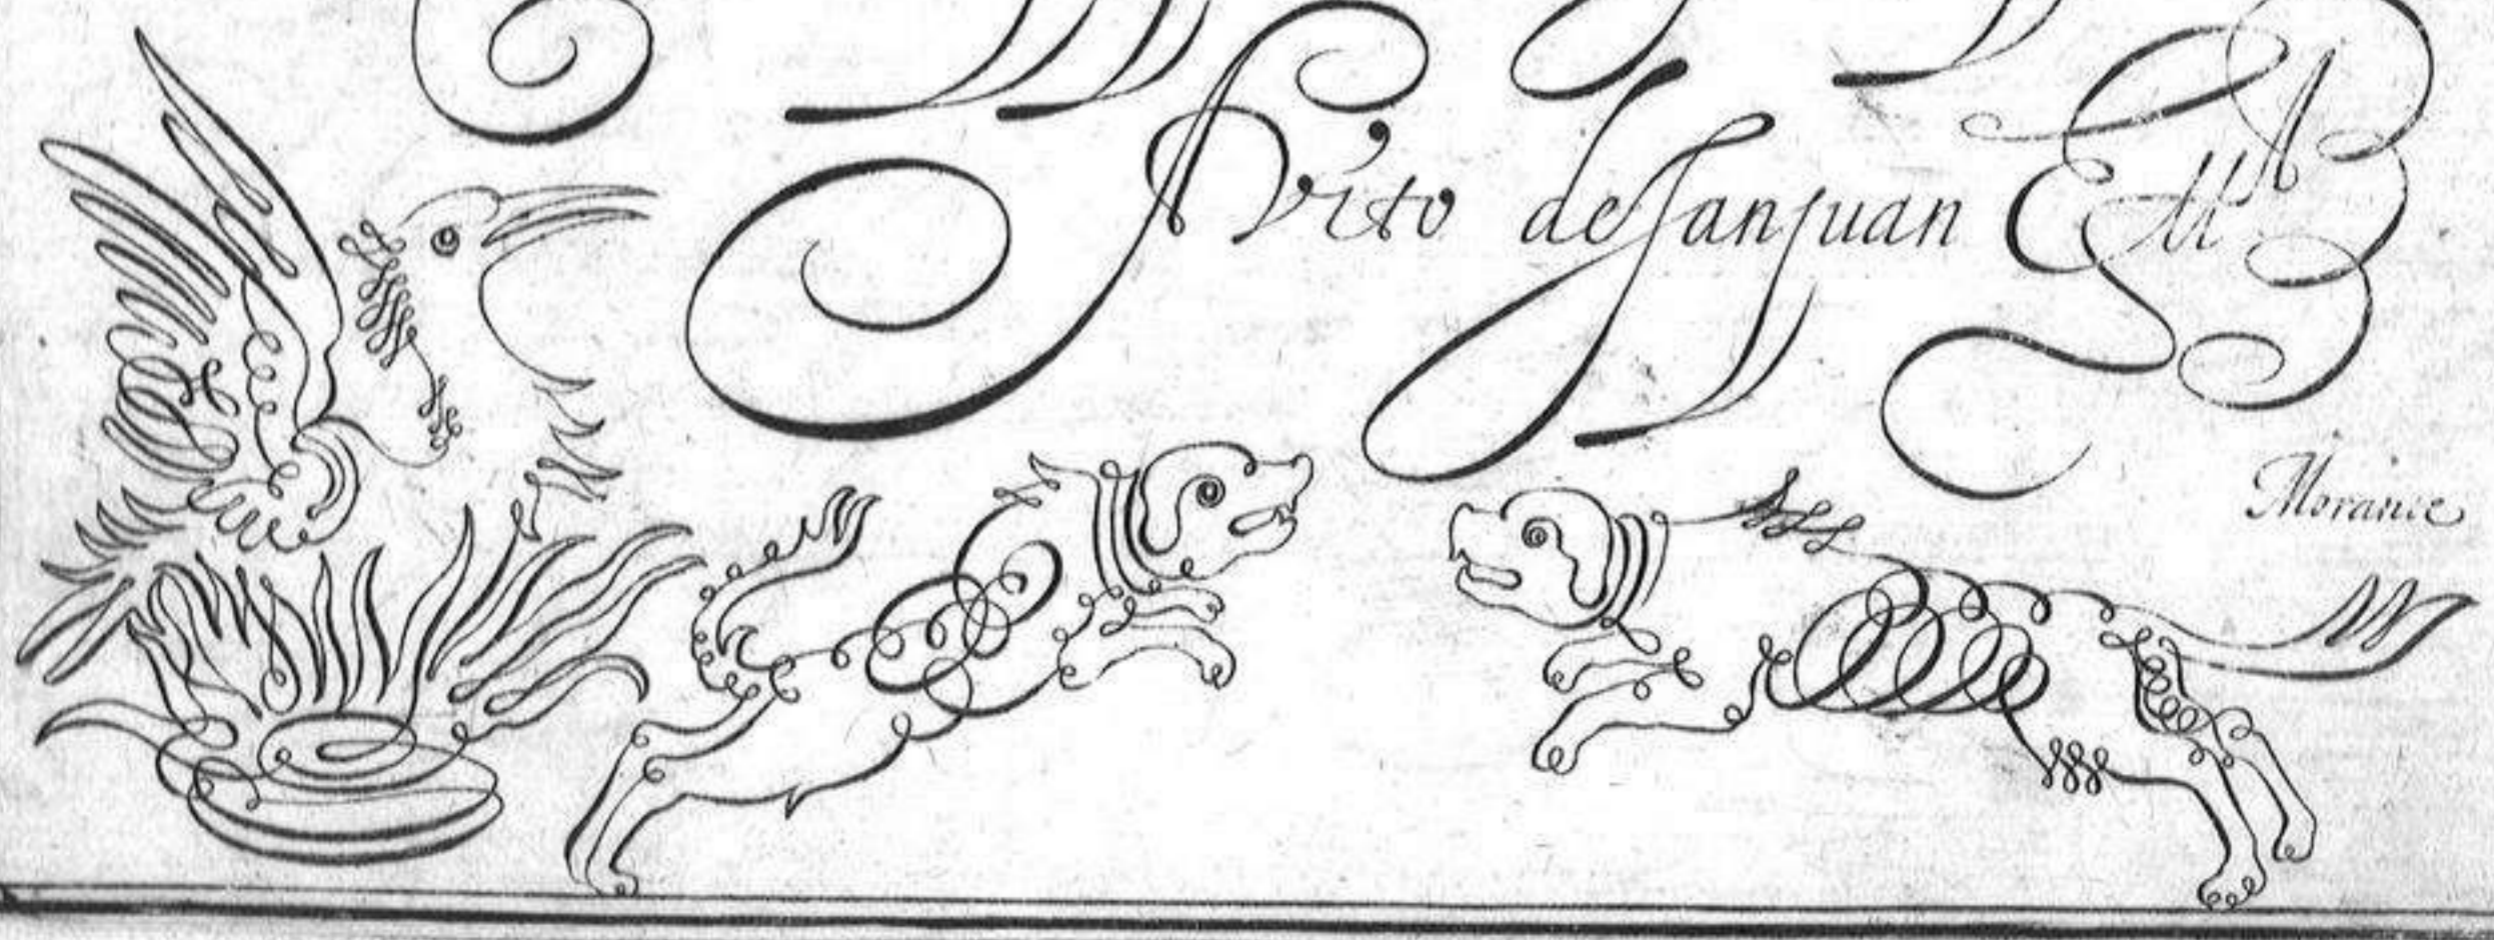 Avito de ſanjuan
Morante